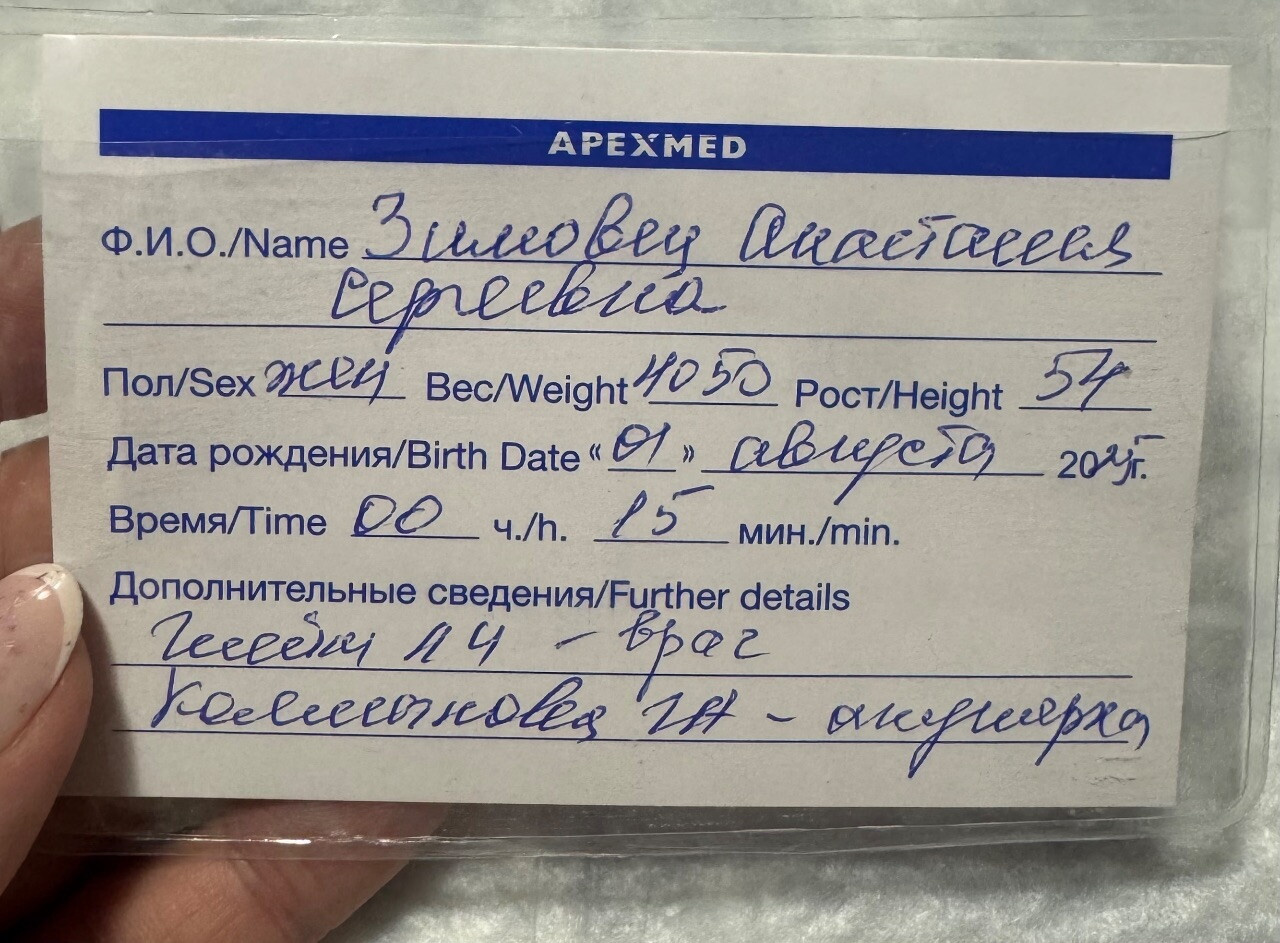 APEXMED
Ф.И.О./Name Зимовец Анастасия
Сергеевна
Пол/Sex жен Вес/Weight 4050 Рост/Height 54
Дата рождения/Birth Date «01» августа 2025г.
Время/Time 00 ч./h. 15 мин./min.
Дополнительные сведения/Further details
- врач
- акушерка